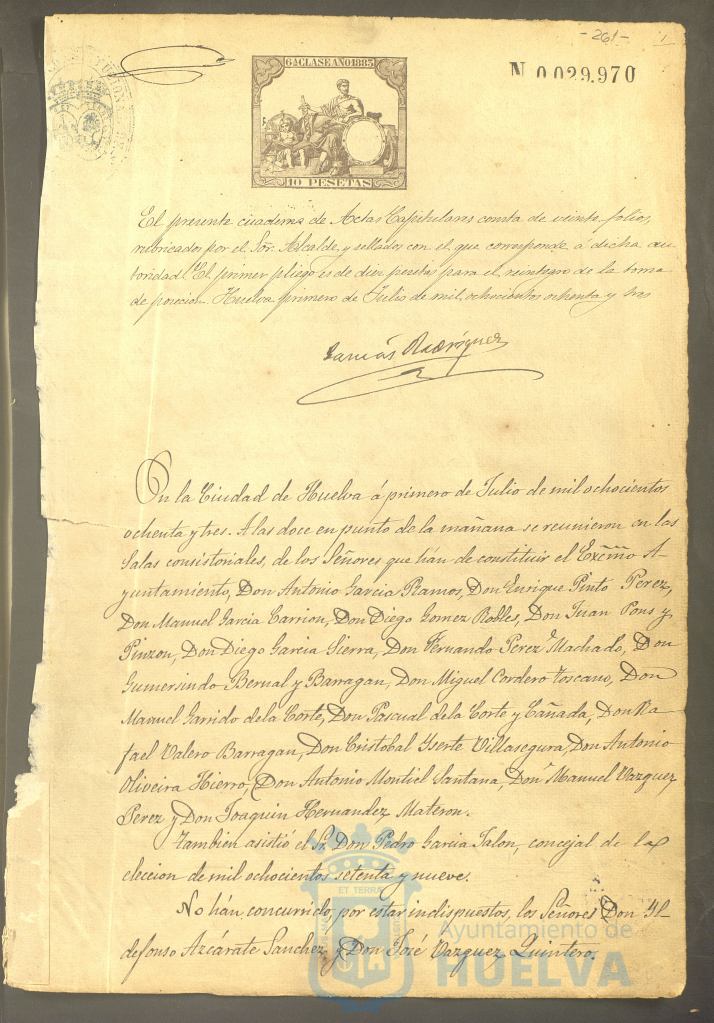 -261- 1
6ª CLASE AÑO 1883
N 0.029.970
10 PESETAS
El presente cuaderno de Actas Capitulares consta de veinte folios,
rubricados por el Sor. Alcalde, y sellados con el que corresponde á dicha au-
toridad. El primer pliego es de diez pesetas para el reintegro de la toma
de posecion. Huelva primero de Julio de mil ochocientos ochenta y tres
Garcia Rodriguez
En la Ciudad de Huelva á primero de Julio de mil ochocientos
ochenta y tres. A las doce en punto de la mañana se reunieron en las
Salas consistoriales, de los Señores que hán de constituir el Excmo A-
yuntamiento, Don Antonio Garcia Ramos, Don Enrique Pinto Perez,
Don Manuel Garcia Carrion, Don Diego Gomez Robles, Don Juan Pons y
Pinzon, Don Diego Garcia Sierra, Don Fernando Perez Machado, Don
Gumersindo Bernal y Barragan, Don Miguel Cordero Toscano, Don
Manuel Garrido de la Corte, Don Pascual de la Corte y Cañada, Don Ra-
fael Valero Barragan, Don Cristobal Yserte Villasegura, Don Antonio
Oliveira Hierro, Don Antonio Montiel Santana, Don Manuel Vazquez
Perez y Don Joaquin Hernandez Materon.
Tambien asistió el Sr. Don Pedro Garcia Jalon, concejal de la
eleccion de mil ochocientos setenta y nueve.
No hán concurrido, por estar indispuestos, los Señores Don Yl-
defonso Azcárate Sanchez y Don José Vazquez Quintero.
ET TERRÆ
Ayuntamiento de
HUELVA